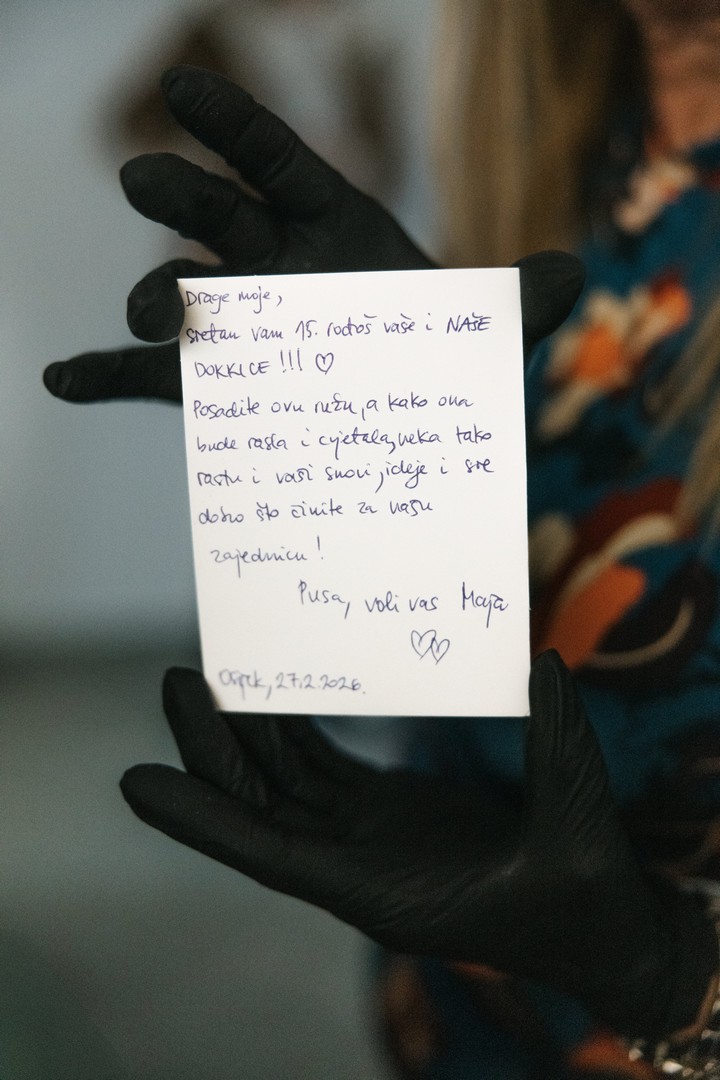 Drage moje,
sretan vam 15. rođoš vaše i NAŠE
DOKKICE !!! ♡
Posadite ovu ružu, a kako ona
bude rasla i cvjetala, neka tako
rastu i vaši snovi, ideje i sve
dobro što činite za našu
zajednicu!
Pusa, voli vas Maja
Osijek, 27.2.2026.